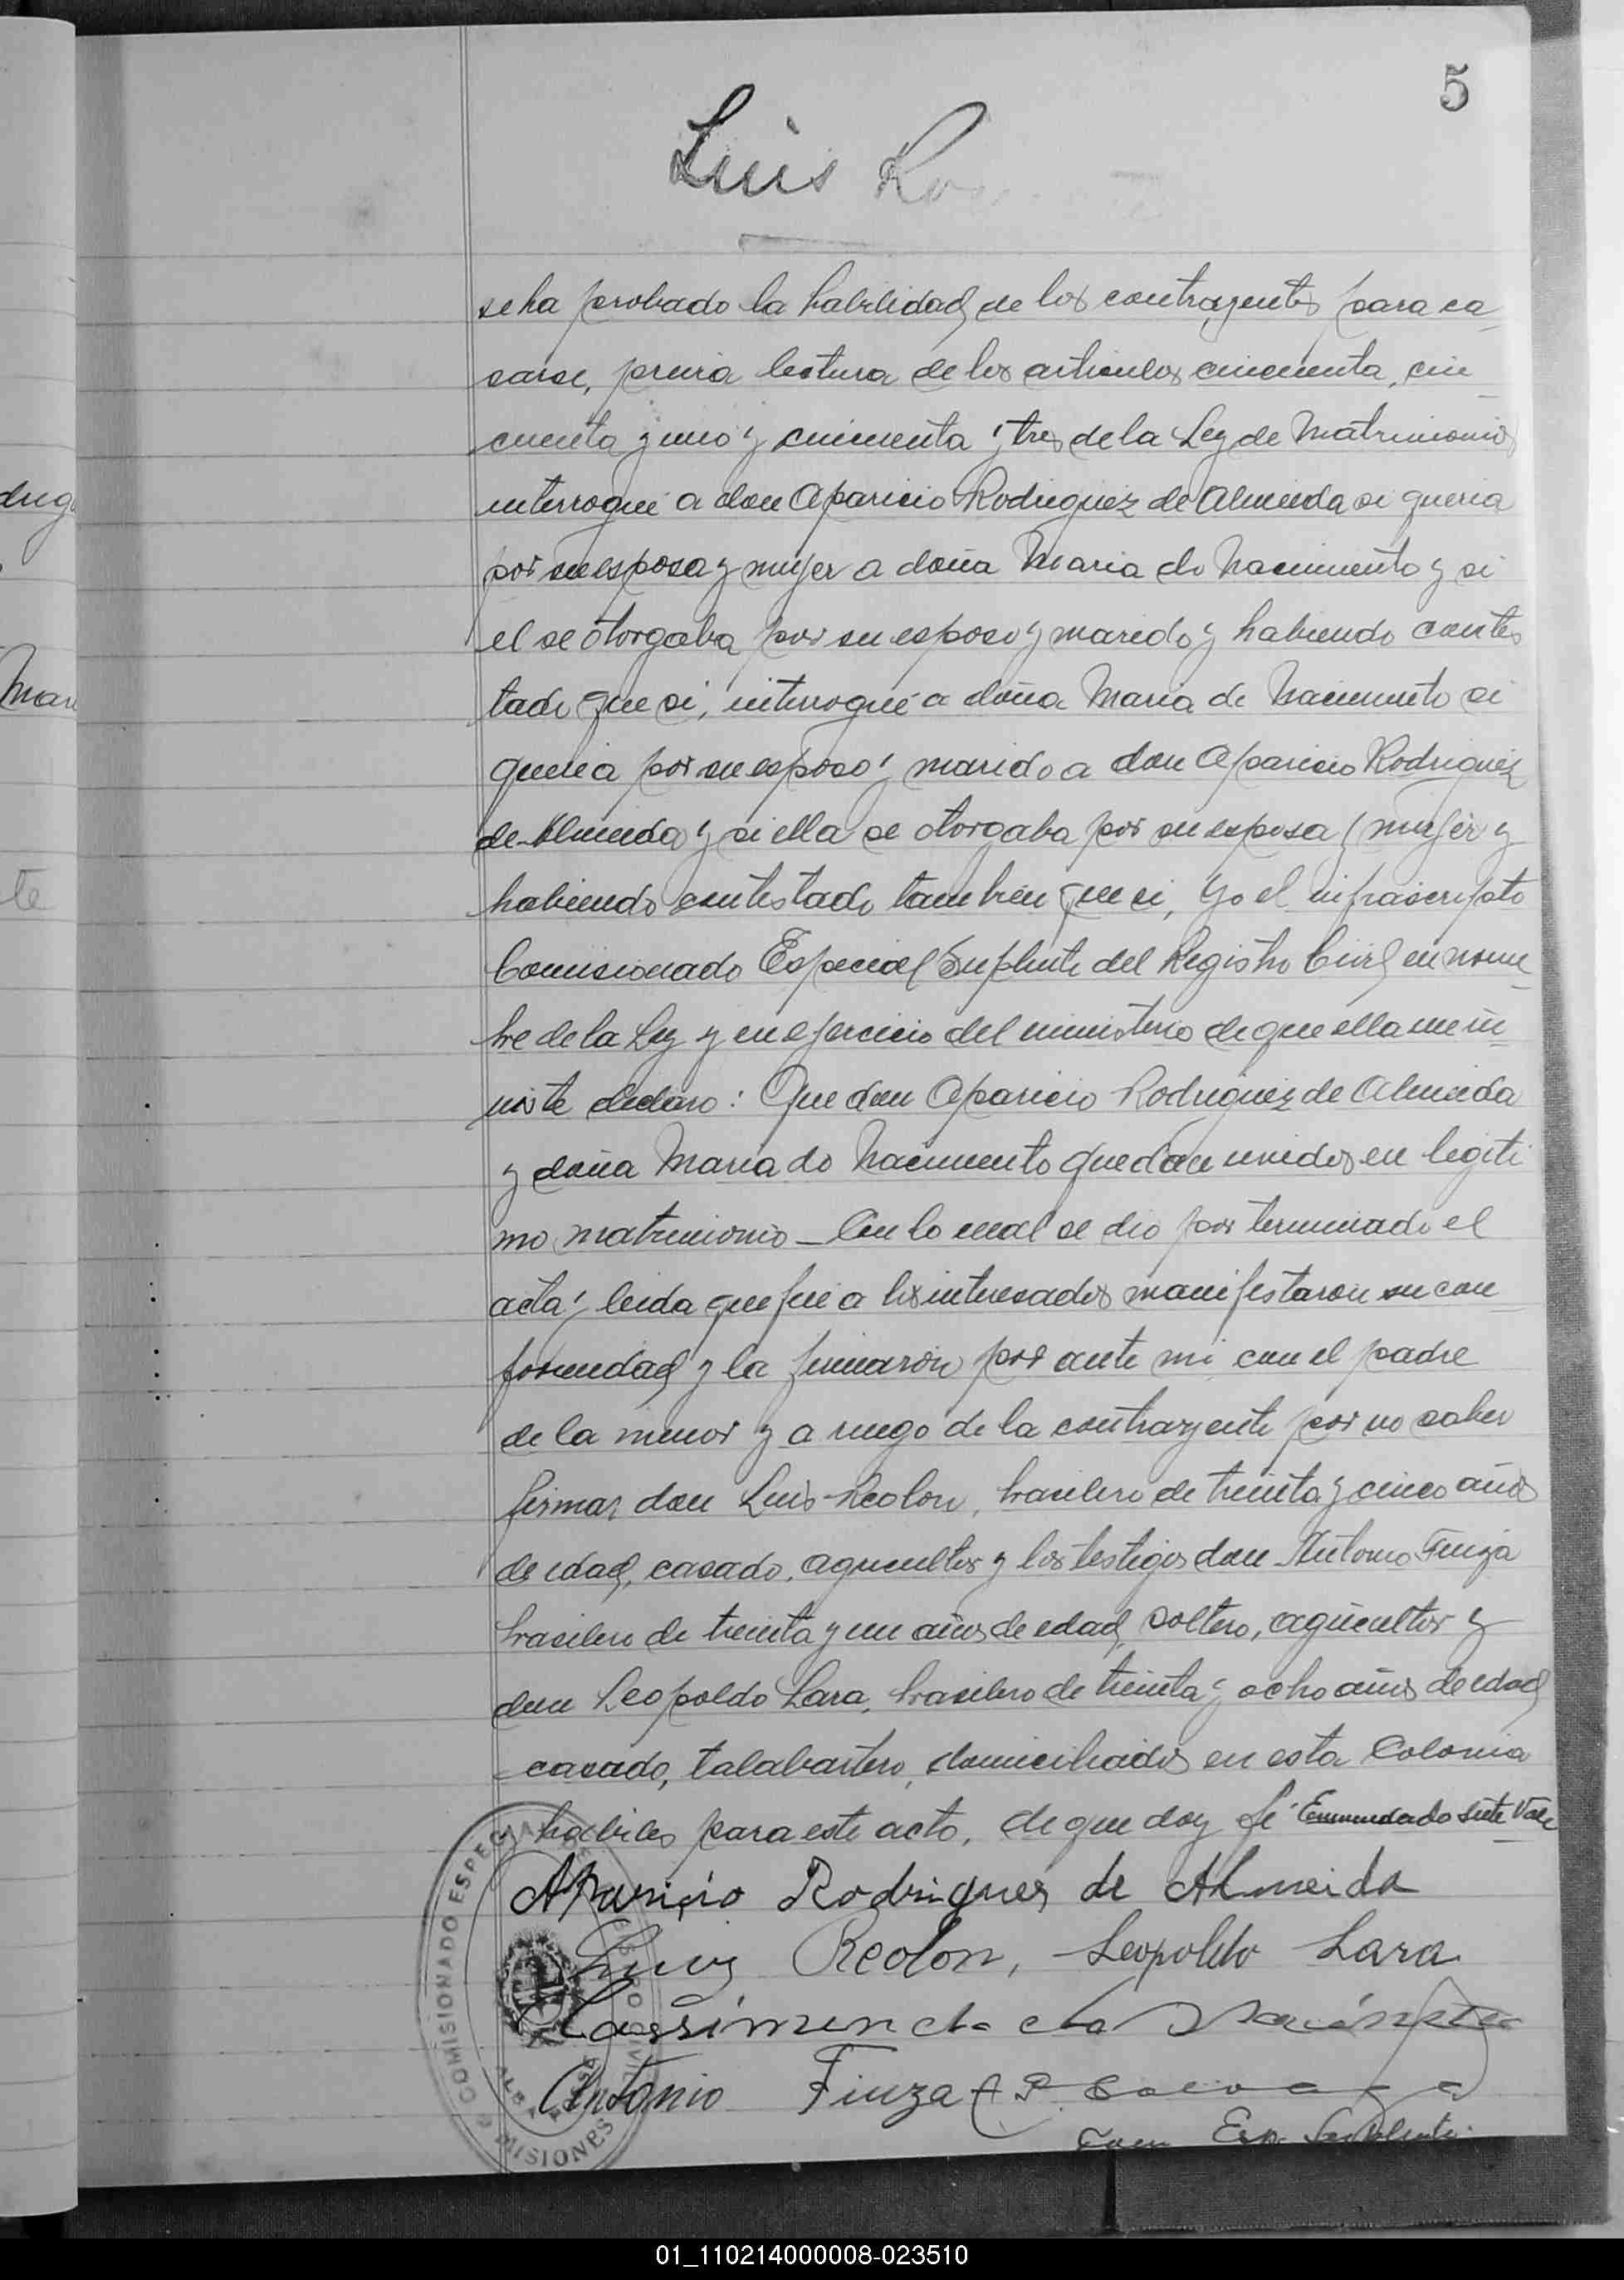 5
Luis
se ha probado la habilidad de los contrayentes para ca-
sarse, previa lectura de los articulos cincuenta, cin-
cuenta y uno y cincuenta y tres de la Ley de Matrimonio
interrogué a don Aparicio Rodriguez de Almeida si queria
por su esposa y mujer a doña Maria do Nacimento y si
el se otorgaba por su esposo y marido y habiendo contes
tado que si, interrogué a doña Maria do Nacimento si
queria por su esposo y marido a don Aparicio Rodriguez
de Almeida y si ella se otorgaba por su esposa y mujer y
habiendo contestado tambien que si, Yo el infrascripto
Comisionado Especial Suplente del Registro Civil en nom-
bre de la Ley y en ejercicio del ministerio de que ella me in-
viste declaro: Que don Aparicio Rodriguez de Almeida
y doña Maria do Nacimento quedan unidos en legiti
mo matrimonio - Con lo cual se dio por terminado el
acta y leida que fue a los interesados manifestaron su con
formidad y la firmaron por ante mi con el padre
de la menor y a ruego de la contrayente por no saber
firmar don Luis Reolon, brasilero de treinta y cinco años
de edad, casado, agricultor y los testigos don Antonio Fiuza
brasilero de treinta y un años de edad, soltero, agricultor y
don Leopoldo Lara, brasilero de treinta y ocho años de edad
casado, talabartero, domiciliados en esta Colonia
habiles para este acto, de que doy fé Enmendado siete Vale
Aparicio Rodrigues de Almeida
Luiz Reolon, Leopoldo Lara
Antonio Fiuza
Com Esp. Suplente
COMISIONADO ESPECIAL
MISIONES
drig
Mar
te
01_110214000008-023510